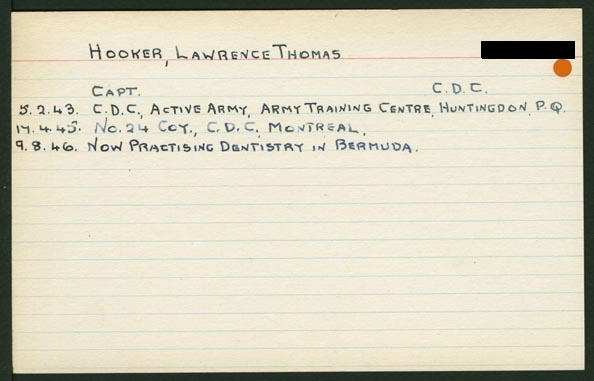 HOOKER, LAWRENCE THOMAS
CAPT. C.D.C.
5.2.43. C.D.C., ACTIVE ARMY, ARMY TRAINING CENTRE, HUNTINGDON, P.Q.
17.4.45. NO.24 COY., C.D.C., MONTREAL.
9.8.46. NOW PRACTISING DENTISTRY IN BERMUDA.